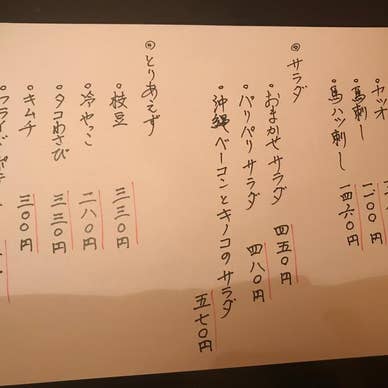 カツオ
馬刺し 一二〇〇円
馬ハツ刺し 一四六〇円
◎サラダ
おまかせサラダ 四五〇円
パリパリサラダ 四八〇円
沖縄ベーコンとキノコのサラダ 五七〇円
◎とりあえず
枝豆 三三〇円
冷やっこ 二八〇円
タコわさび 三三〇円
キムチ 三〇〇円
フライドポテ